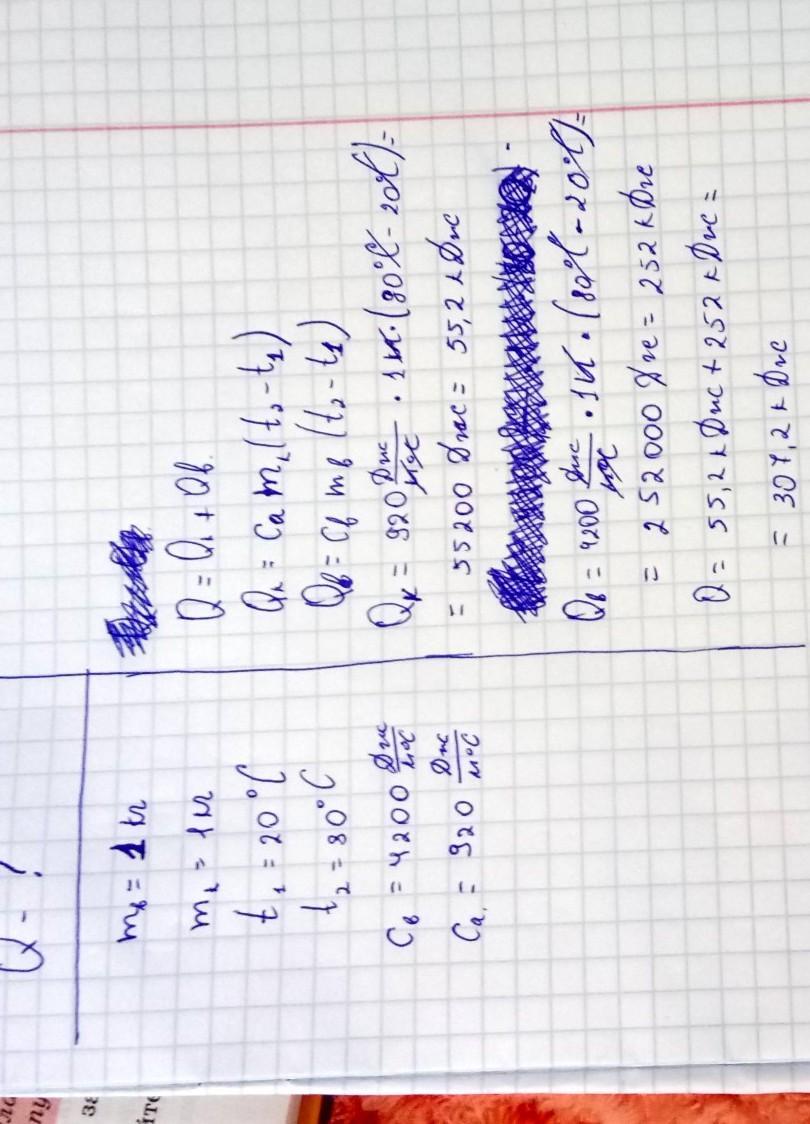 Q - ?
mв = 1 кг
mк = 1 кг
t₁ = 20 °C
t₂ = 80 °C
Cв = 4200 Дж/кг°C
Cа = 920 Дж/кг°C
Q = Qк + Qв.
Qк = Cа mк (t₂ - t₁)
Qв = Cв mв (t₂ - t₁)
Qк = 920 Дж/кг°C · 1 кг · (80°C - 20°C) =
= 55200 Дж = 55,2 кДж
Qв = 4200 Дж/кг°C · 1 кг · (80°C - 20°C) =
= 252000 Дж = 252 кДж
Q = 55,2 кДж + 252 кДж =
= 307,2 кДж